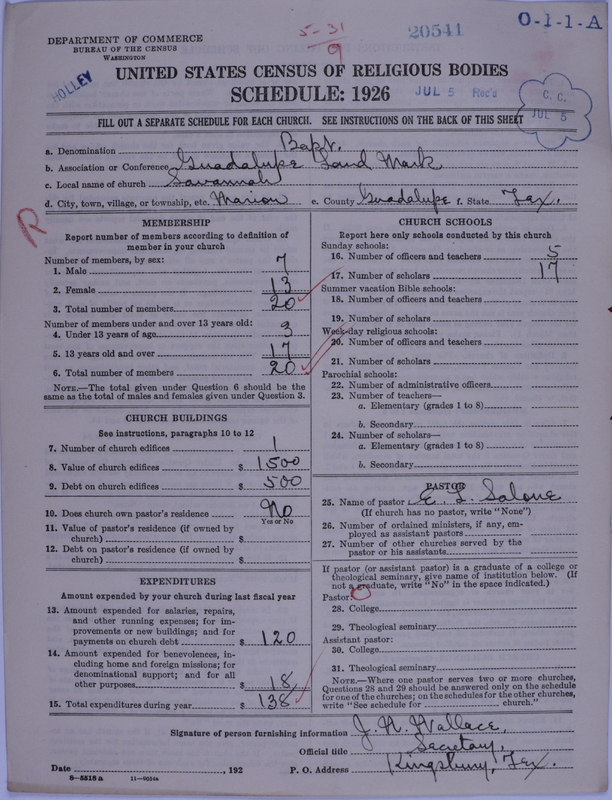 5-31
9
20541
O-1-1-A
DEPARTMENT OF COMMERCE
BUREAU OF THE CENSUS
WASHINGTON
HOLLEY
UNITED STATES CENSUS OF RELIGIOUS BODIES
SCHEDULE: 1926
JUL 5 Rec's
C. C.
JUL 5
FILL OUT A SEPARATE SCHEDULE FOR EACH CHURCH. SEE INSTRUCTIONS ON THE BACK OF THIS SHEET
a. Denomination Bapt.
b. Association or Conference Guadalupe Land Mark
c. Local name of church Savannah
d. City, town, village, or township, etc. Marion e. County Guadalupe f. State Tex.
R
MEMBERSHIP
Report number of members according to definition of
member in your church
Number of members, by sex:
1. Male 7
2. Female 13
3. Total number of members 20
Number of members under and over 13 years old:
4. Under 13 years of age 3
5. 13 years old and over 17
6. Total number of members 20
NOTE.—The total given under Question 6 should be the
same as the total of males and females given under Question 3.
CHURCH BUILDINGS
See instructions, paragraphs 10 to 12
7. Number of church edifices 1
8. Value of church edifices $ 1500
9. Debt on church edifices $ 500
10. Does church own pastor's residence No
Yes or No
11. Value of pastor's residence (if owned by
church) $
12. Debt on pastor's residence (if owned by
church) $
EXPENDITURES
Amount expended by your church during last fiscal year
13. Amount expended for salaries, repairs,
and other running expenses; for im-
provements or new buildings; and for
payments on church debt $ 120
14. Amount expended for benevolences, in-
cluding home and foreign missions; for
denominational support; and for all
other purposes $ 18
15. Total expenditures during year $ 138
CHURCH SCHOOLS
Report here only schools conducted by this church
Sunday schools:
16. Number of officers and teachers 5
17. Number of scholars 17
Summer vacation Bible schools:
18. Number of officers and teachers
19. Number of scholars
Week-day religious schools:
20. Number of officers and teachers
21. Number of scholars
Parochial schools:
22. Number of administrative officers
23. Number of teachers—
a. Elementary (grades 1 to 8)
b. Secondary
24. Number of scholars—
a. Elementary (grades 1 to 8)
b. Secondary
PASTOR
25. Name of pastor E. L. Salone
(If church has no pastor, write "None")
26. Number of ordained ministers, if any, em-
ployed as assistant pastors
27. Number of other churches served by the
pastor or his assistants
If pastor (or assistant pastor) is a graduate of a college or
theological seminary, give name of institution below. (If
not a graduate, write "No" in the space indicated.)
Pastor:
28. College
29. Theological seminary
Assistant pastor:
30. College
31. Theological seminary
NOTE.—Where one pastor serves two or more churches,
Questions 28 and 29 should be answered only on the schedule
for one of the churches; on the schedules for the other churches,
write "See schedule for church."
Signature of person furnishing information J. N. Wallace,
Official title Secretary,
Date , 192 P. O. Address Kingsbury, Tex.
8-5518 a 11-9654a